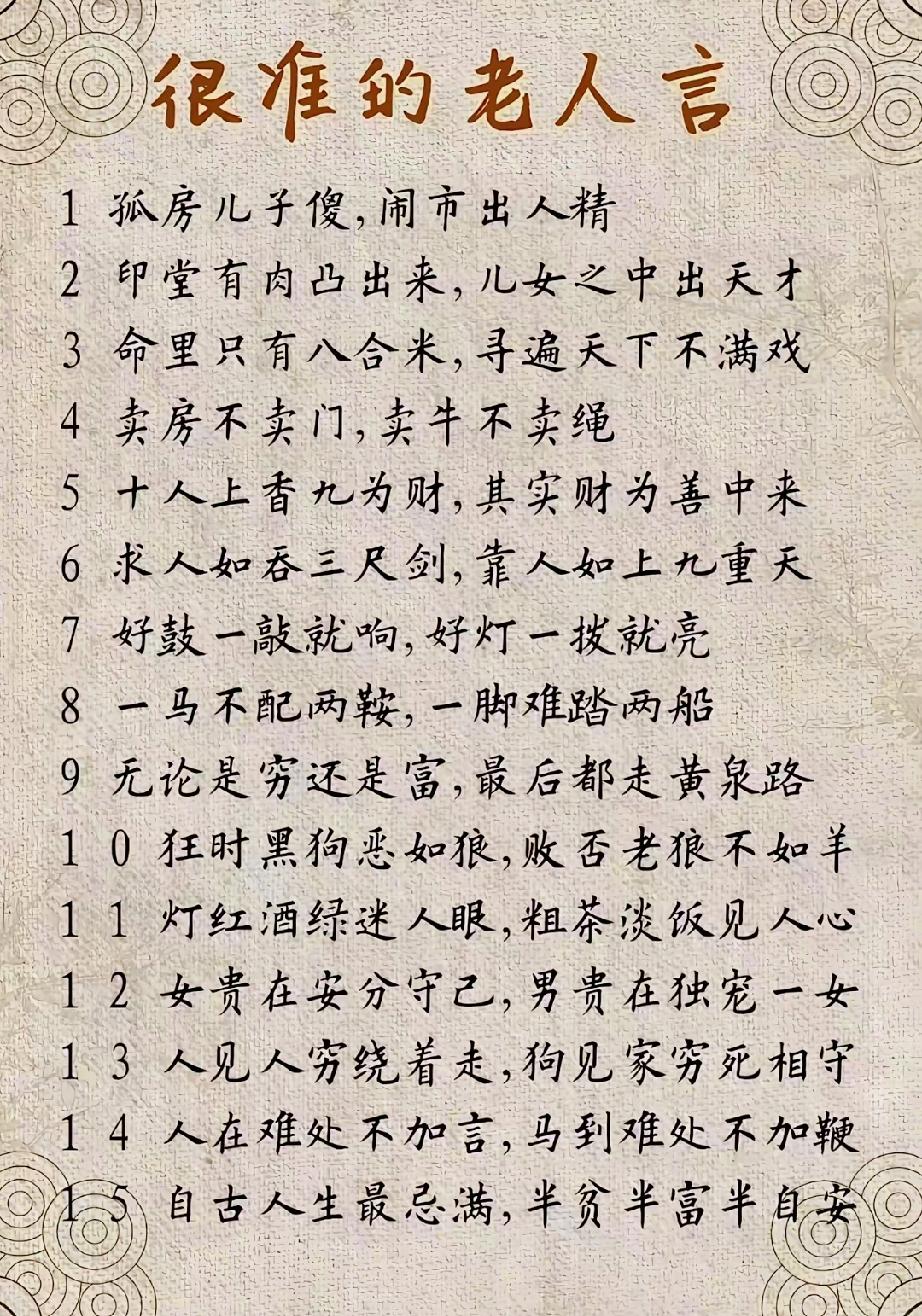 很准的老人言
1 孤房儿子傻,闹市出人精
2 印堂有肉凸出来,儿女之中出天才
3 命里只有八合米,寻遍天下不满戏
4 卖房不卖门,卖牛不卖绳
5 十人上香九为财,其实财为善中来
6 求人如吞三尺剑,靠人如上九重天
7 好鼓一敲就响,好灯一拨就亮
8 一马不配两鞍,一脚难踏两船
9 无论是穷还是富,最后都走黄泉路
10 狂时黑狗恶如狼,败否老狼不如羊
11 灯红酒绿迷人眼,粗茶淡饭见人心
12 女贵在安分守己,男贵在独宠一女
13 人见人穷绕着走,狗见家穷死相守
14 人在难处不加言,马到难处不加鞭
15 自古人生最忌满,半贫半富半自安